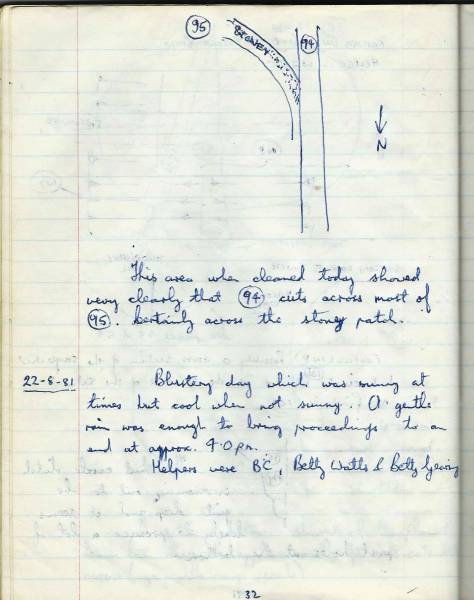 95
94
N
This area when cleaned today showed
very clearly that 94 cuts across most of
95. Certainly across the stoney patch.
22-8-81 Blustery day which was sunny at
times but cool when not sunny. A gentle
rain was enough to bring proceedings to an
end at approx. 4.0 pm.
Helpers were BC, Betty Watts & Betty
32